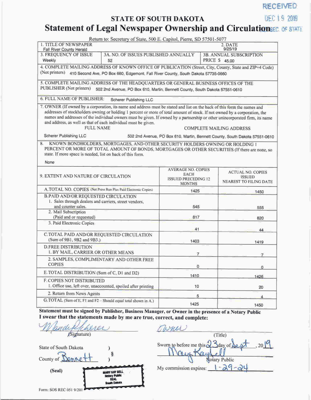 RECEIVED
DEC 19 2019
STATE OF SOUTH DAKOTA
Statement of Legal Newspaper Ownership and Circulation
SEC OF STATE
Return to: Secretary of State, 500 E. Capitol, Pierre, SD 57501-5077
1. TITLE OF NEWSPAPER
Fall River County Herald
2. DATE
3. FREQUENCY OF ISSUE
Weekly
3A. NO. OF ISSUES PUBLISHED ANNUALLY
52
3B. ANNUAL SUBSCRIPTION
PRICE $
4. COMPLETE MAILING ADDRESS OF KNOWN OFFICE OF PUBLICATION (Street, City, County, State and ZIP+4 Code)
(Not printers) 410 Second Ave, PO Box 980, Edgemont, Fall River County, South Dakota
5. COMPLETE MAILING ADDRESS OF THE HEADQUARTERS OR GENERAL BUSINESS OFFICES OF THE
PUBLISHER (Not printers) 502 2nd Avenue, PO Box 610, Martin, Bennett County, South Dakota 57551-0610
6. FULL NAME OF PUBLISHER: Scherer Publishing LLC
7. OWNER (If owned by a corporation, its name and address must be stated and list on the back of this form the names and
addresses of stockholders owning or holding 1 percent or more of total amount of stock. If not owned by a corporation, the
names and addresses of the individual owners must be given. If owned by a partnership or other unincorporated firm, its name
and address, as well as that of each individual must be given.)
FULL NAME
COMPLETE MAILING ADDRESS
Scherer Publishing LLC
502 2nd Avenue, PO Box 610, Martin, Bennett County, South Dakota 57551-0610
8. KNOWN BONDHOLDERS, MORTGAGES, AND OTHER SECURITY HOLDERS OWNING OR HOLDING 1
PERCENT OR MORE OF TOTAL AMOUNT OF BONDS, MORTGAGES OR OTHER SECURITIES (If there are none, so
state. If more space is needed, list on back of this form.
None
9. EXTENT AND NATURE OF CIRCULATION
AVERAGE NO. COPIES
EACH
ISSUED PRECEDING 12
MONTHS
ACTUAL NO. COPIES
ISSUED
NEAREST TO FILING DATE
A. TOTAL NO. COPIES
1425
1450
B. PAID AND/OR REQUESTED CIRCULATION
1. Sales through dealers and carriers, street vendors,
and counter sales.
2. Mail Subscription
(Paid and or requested)
3. Paid Electronic Copies
41
44
C. TOTAL PAID AND/OR REQUESTED CIRCULATION
(Sum of 9B1, 9B2 and 9B3.)
1403
1419
D. FREE DISTRIBUTION
1. BY MAIL, CARRIER OR OTHER MEANS
7
7
2. SAMPLES, COMPLIMENTARY AND OTHER FREE
COPIES
0
0
E. TOTAL DISTRIBUTION (Sum of C, D1 and D2)
1410
1426
F. COPIES NOT DISTRIBUTED
1. Office use, left over, unaccounted, spoiled after printing
10
20
2. Return from News Agents
5
4
G. TOTAL (Sum of E, F1 and F2 - Should equal total shown in A.)
1425
1450
Statement must be signed by Publisher, Business Manager, or Owner in the presence of a Notary Public
I swear that the statements made by me are true, correct, and complete:
owner
(Signature)
(Title)
State of South Dakota )
Sworn to before me this 23 day of Sept, 2019
County of Bennett )
Notary Public
(Seal)
MARY KAY BELL
Notary Public
SEAL
South Dakota
My commission expires: 1-29-24